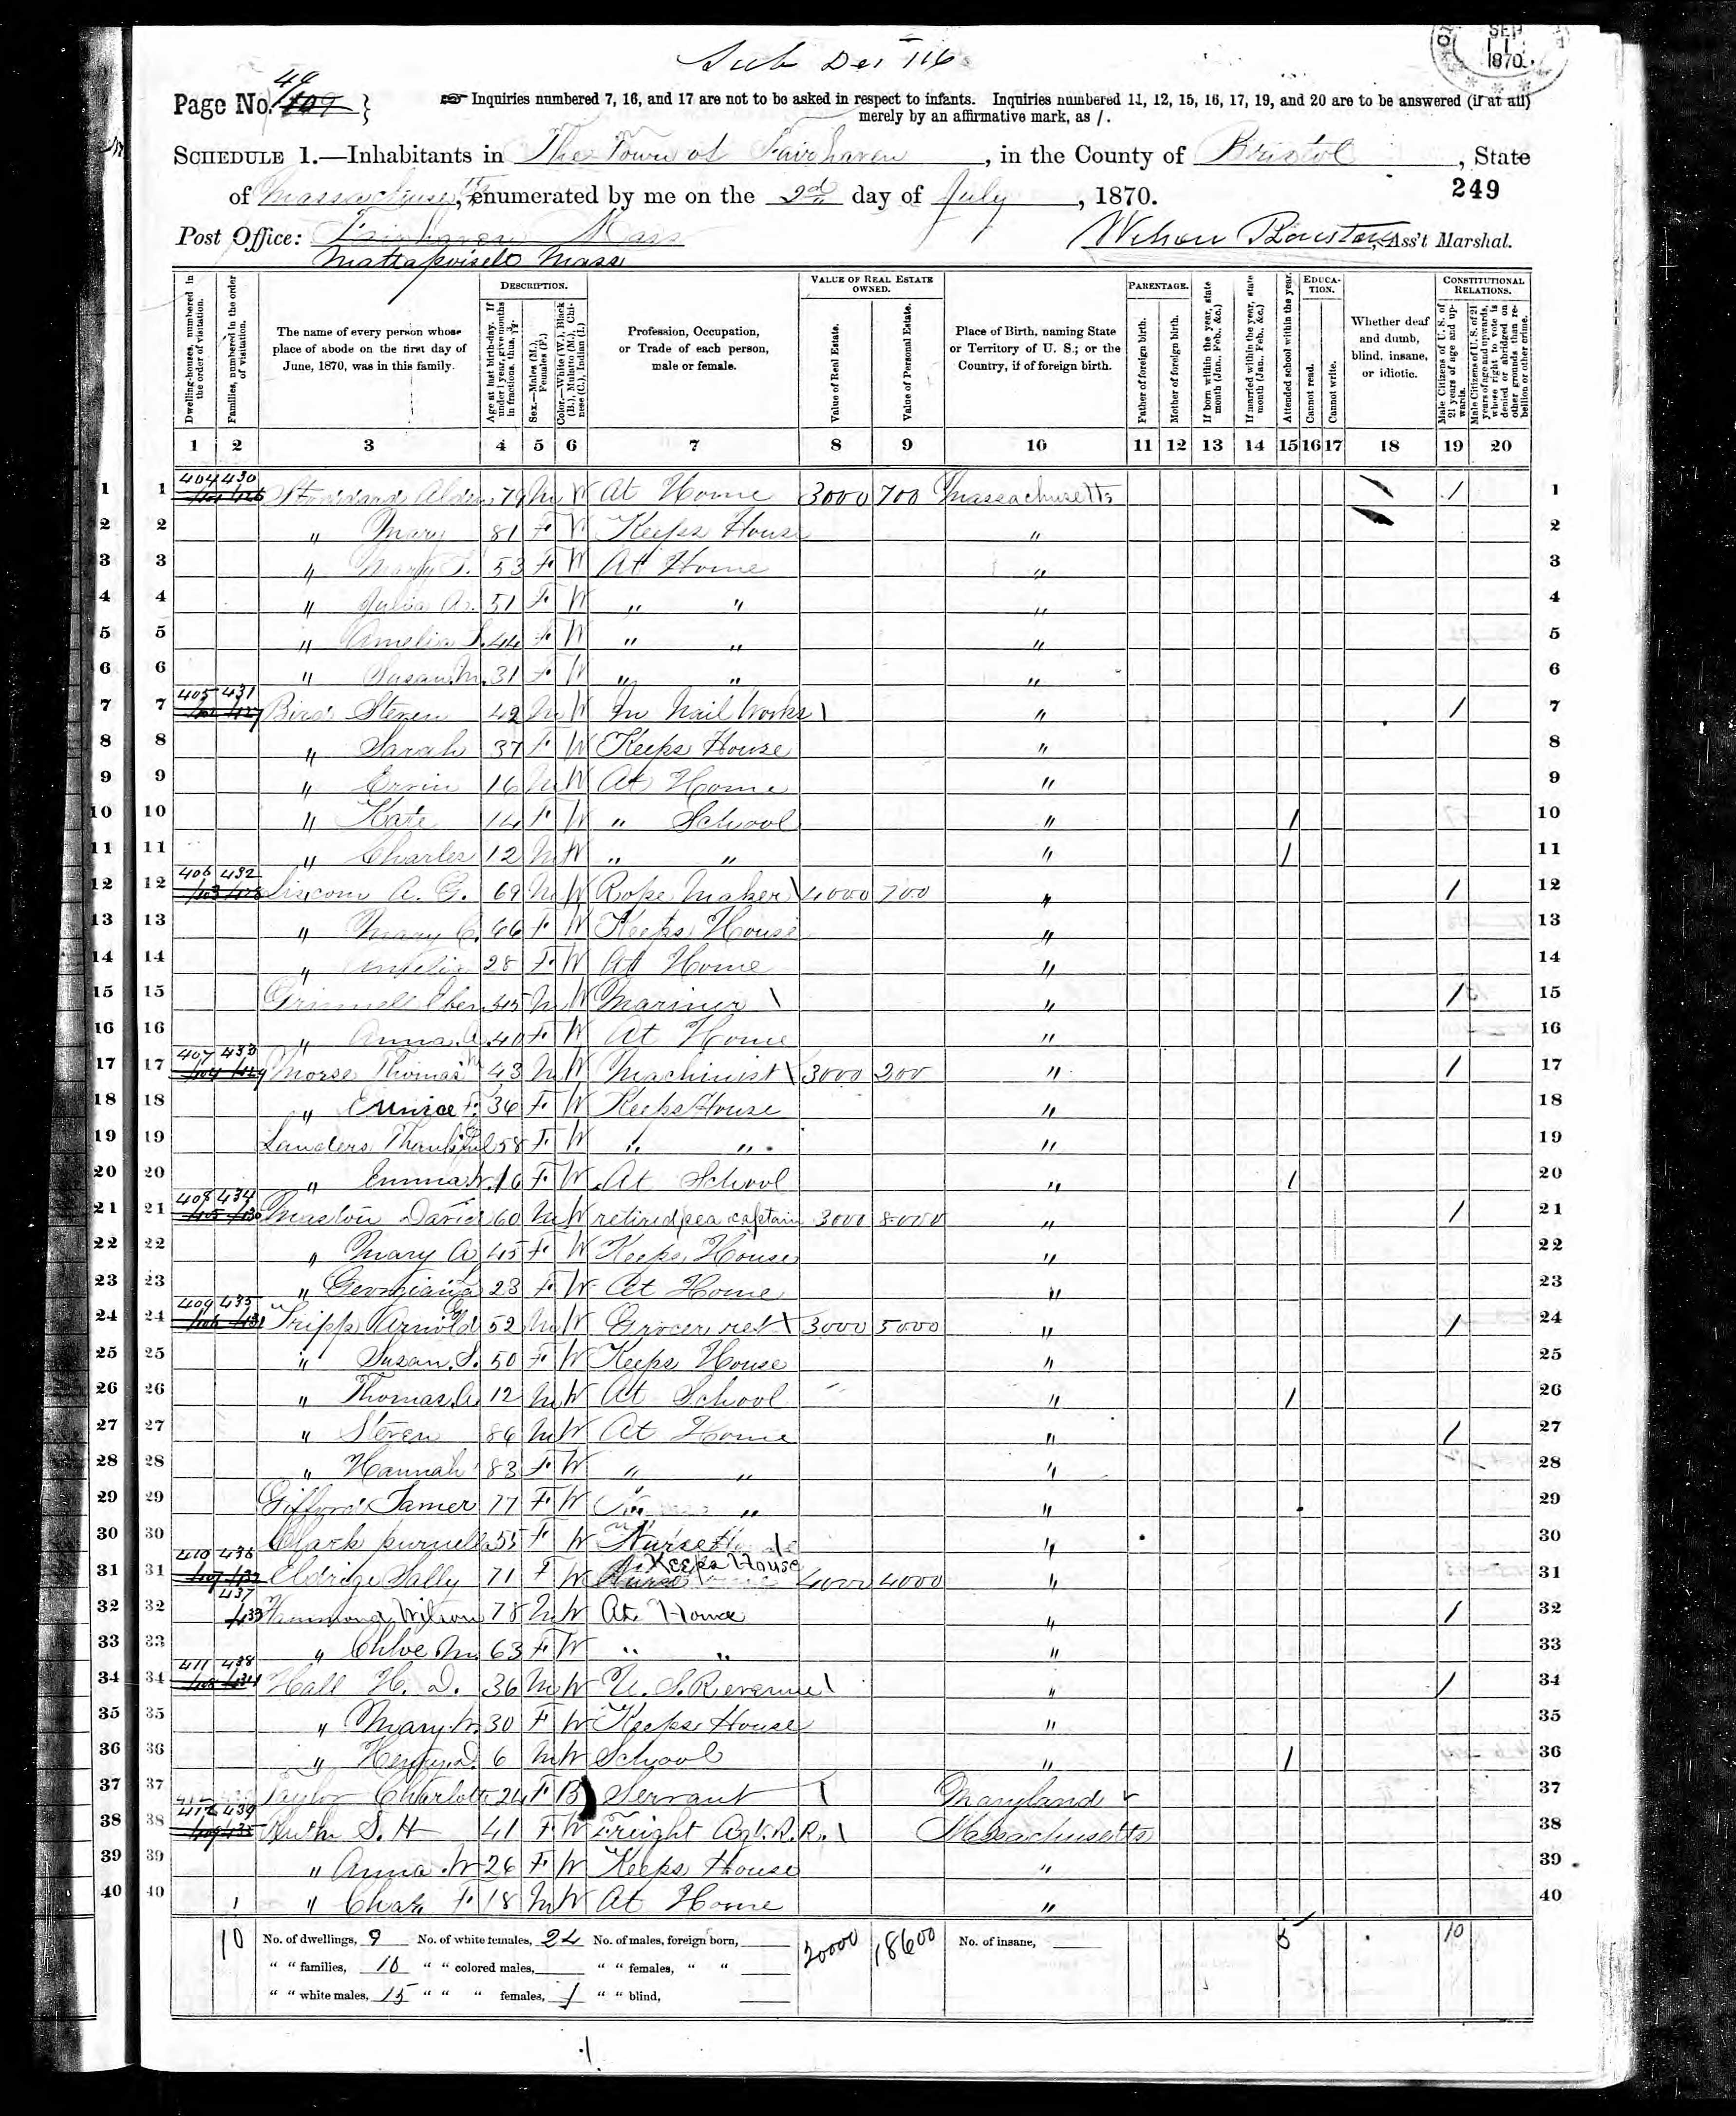 Sub Des 116
SEP 11 1870
49
Page No. 109 }
Inquiries numbered 7, 16, and 17 are not to be asked in respect to infants. Inquiries numbered 11, 12, 15, 16, 17, 19, and 20 are to be answered (if at all)
merely by an affirmative mark, as /.
SCHEDULE 1.—Inhabitants in The Town of Fairhaven, in the County of Bristol, State
of Massachusetts, enumerated by me on the 2d day of July, 1870.
249
Post Office: Fairhaven Mass
Mattapoisett Mass
Ass't Marshal.
Dwelling-houses, numbered in the order of visitation.
Families, numbered in the order of visitation.
The name of every person whose place of abode on the first day of June, 1870, was in this family.
DESCRIPTION.
Age at last birth-day. If under 1 year, give months in fractions, thus, 3/12.
Sex.—Males (M.), Females (F.)
Color.—White (W.), Black (B.), Mulatto (M.), Chinese (C.), Indian (I.)
Profession, Occupation, or Trade of each person, male or female.
VALUE OF REAL ESTATE OWNED.
Value of Real Estate.
Value of Personal Estate.
Place of Birth, naming State or Territory of U. S.; or the Country, if of foreign birth.
PARENTAGE.
Father of foreign birth.
Mother of foreign birth.
If born within the year, state month (Jan., Feb., &c.)
If married within the year, state month (Jan., Feb., &c.)
Attended school within the year.
EDUCATION.
Cannot read.
Cannot write.
Whether deaf and dumb, blind, insane, or idiotic.
CONSTITUTIONAL RELATIONS.
Male Citizens of U. S. of 21 years of age and upwards.
Male Citizens of U. S. of 21 years of age and upwards, whose right to vote is denied or abridged on other grounds than rebellion or other crime.
1 2 3 4 5 6 7 8 9 10 11 12 13 14 15 16 17 18 19 20
1 1 404 430 Stoddard Alden 79 M W At Home 3000 700 Massachusetts / 1
2 2 " Mary 81 F W Keeps House " 2
3 3 " Mary 53 F W At Home " 3
4 4 " Julia A. 51 F W " " " 4
5 5 " Amelia 44 F W " " " 5
6 6 " Susan M. 31 F W " " " 6
7 7 405 431 Bird Steven 42 M W In Nail Works \ " / 7
8 8 " Sarah 37 F W Keeps House " 8
9 9 " Ervin 16 M W At Home " 9
10 10 " Kate 14 F W " School " / 10
11 11 " Charles 12 M W " " " / 11
12 12 406 432 A. G. 69 M W Rope Maker \ 4000 700 " / 12
13 13 " Mary C. 66 F W Keeps House " 13
14 14 " 28 F W At Home " 14
15 15 Grinnell Eben 45 M W Mariner \ " / 15
16 16 " Anna A 40 F W At Home " 16
17 17 407 433 Morse Thomas 43 M W Machinist \ 3000 200 " / 17
18 18 " Eunice F. 36 F W Keeps House " 18
19 19 Sanders Thankful 58 F W " " " 19
20 20 " Emma 16 F W At School " / 20
21 21 408 434 David 60 M W retired sea captain 3000 8000 " / 21
22 22 " Mary A 45 F W Keeps House " 22
23 23 " Georgiana 23 F W At Home " 23
24 24 409 435 Tripp Arnold 52 M W Grocer ret \ 3000 5000 " / 24
25 25 " Susan S. 50 F W Keeps House " 25
26 26 " Thomas A. 12 M W At School " / 26
27 27 " Steven 86 M W At Home " / 27
28 28 " Hannah 83 F W " " " 28
29 29 Gifford Tamer 77 F W " " 29
30 30 Clark 55 F W Nurse " 30
31 31 410 436 Eldrige Sally 71 F W Keeps House 4000 4000 " 31
32 32 437 Hammond Wilson 78 M W At Home " / 32
33 33 " Chloe M. 63 F W " " " 33
34 34 411 438 Hall H. D. 36 M W U. S. Revenue \ " / 34
35 35 " Mary 30 F W Keeps House " 35
36 36 " Henry D. 6 M W School " / 36
37 37 Taylor Charlotte 24 F B Servant \ Maryland 37
38 38 412 439 S. H 41 F W Freight Agt. R.R. \ Massachusetts 38
39 39 " Anna 26 F W Keeps House " 39
40 40 " Chas F. 18 M W At Home " 40
10 No. of dwellings, 9 No. of white females, 24 No. of males, foreign born, 20000 18600 No. of insane, 5 10
" " families, 10 " " colored males, " " females, " "
" " white males, 15 " " " females, 1 " " blind,